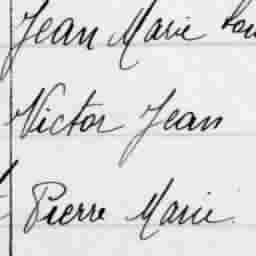 Jean Marie
Victor Jean
Pierre Marie